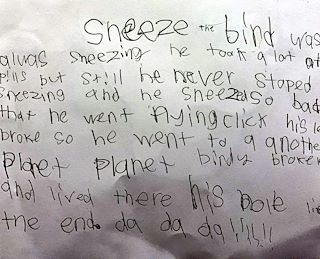 Sneeze the bind was
alwas sneezing he took a lot of
pills but still he never stoped
sneezing and he sneezed so bad
that he went flying click his
broke so he went to a another
Planet planet bindy broken
and lived there his hole
the end. da da da!!!!!